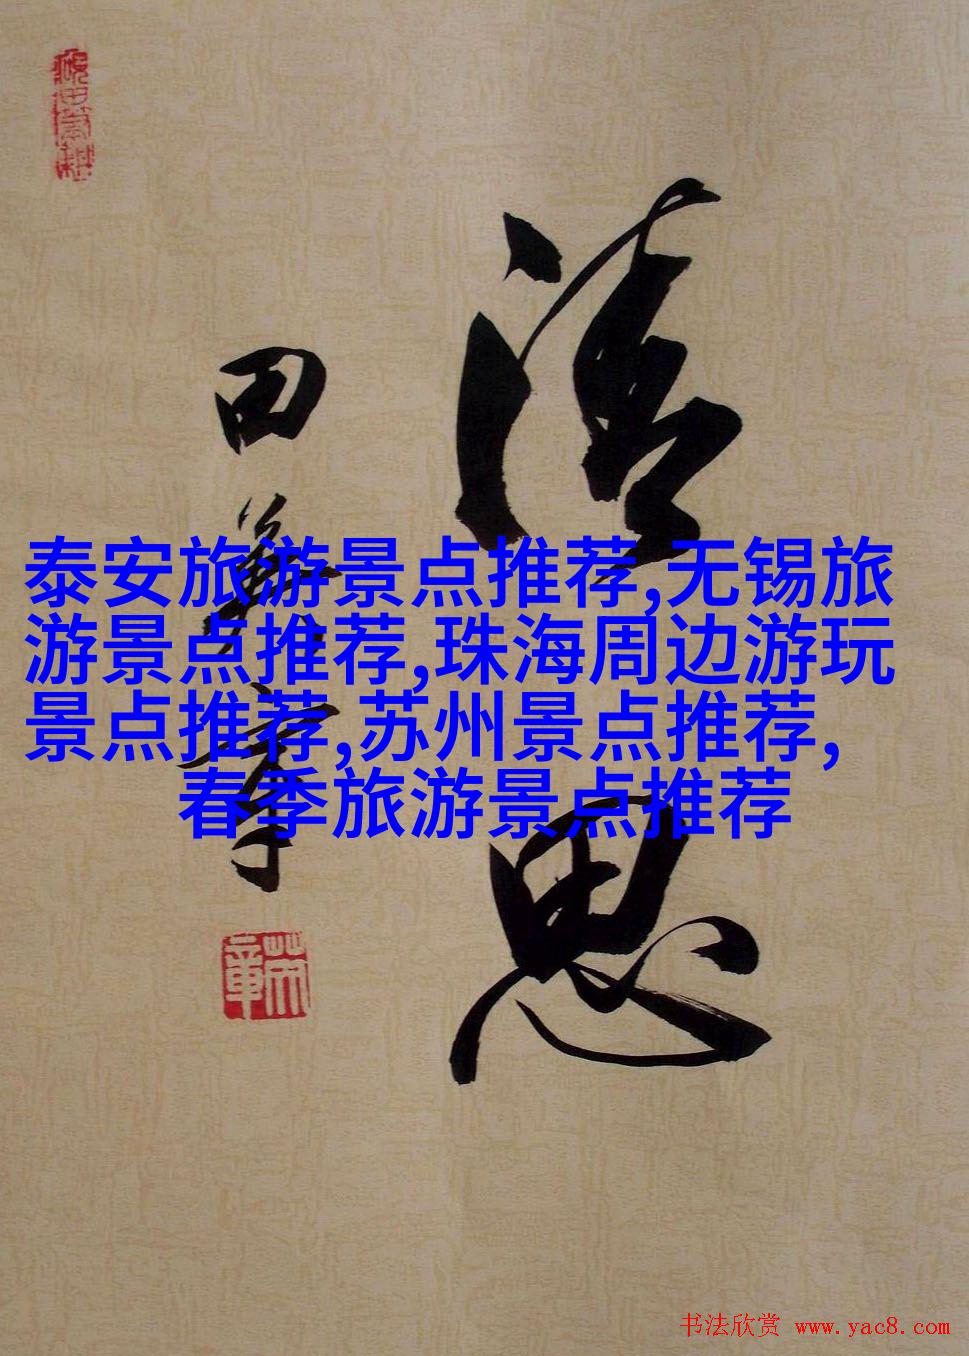 泰安旅游景点推荐,无锡旅
游景点推荐,珠海周边游玩
景点推荐,苏州景点推荐,
春季旅游景点推荐
清思
田英章
英章
书法欣赏 www.yac8.com